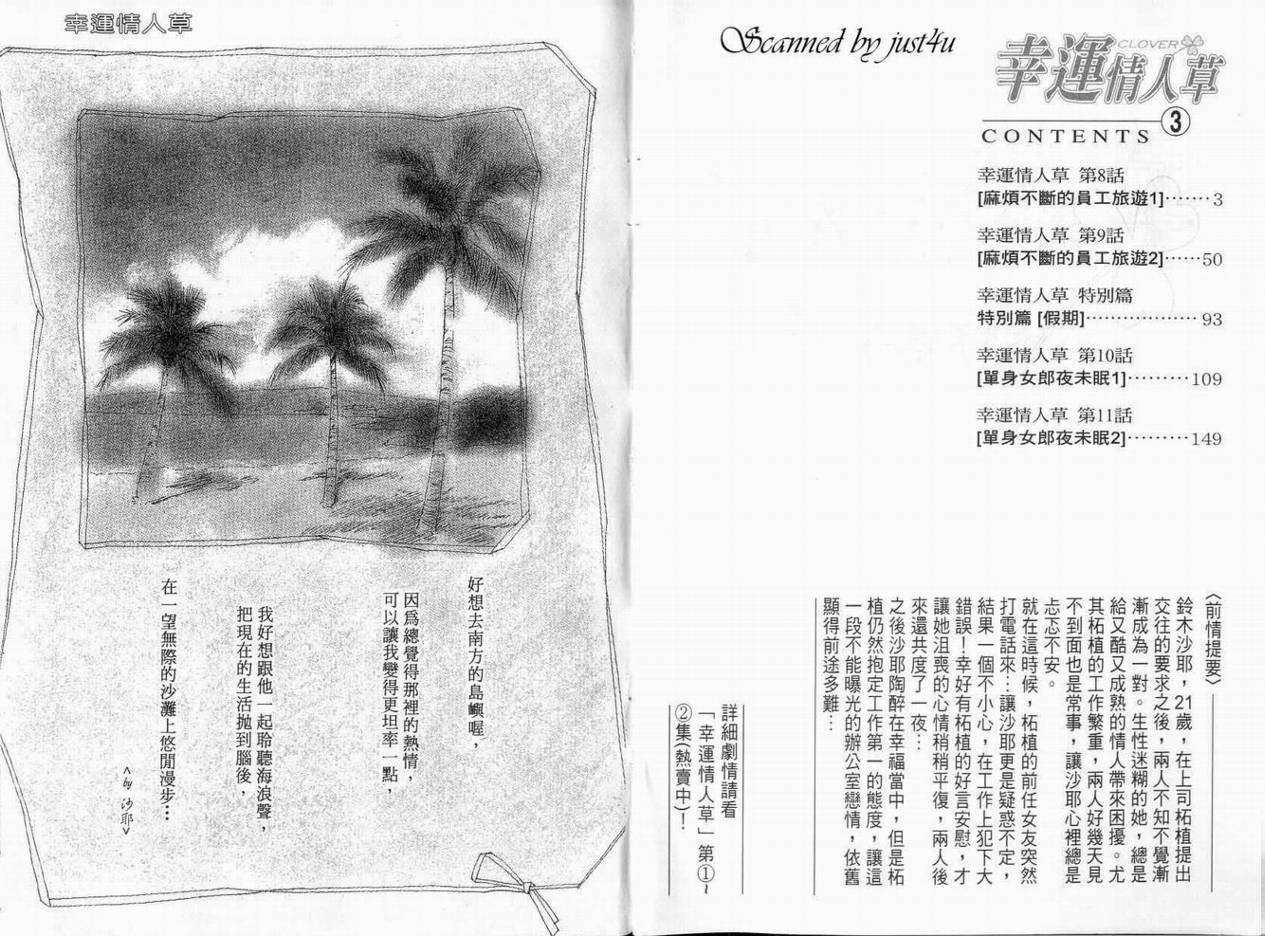 幸運情人草
好想去南方的島嶼喔，
因爲總覺得那裡的熱情，
可以讓我變得更坦率一點，
我好想跟他一起聆聽海浪聲，
把現在的生活拋到腦後，
在一望無際的沙灘上悠閒漫步…
<by 沙耶>
Scanned by just4u
CLOVER
幸運情人草
3
CONTENTS
幸運情人草 第8話
[麻煩不斷的員工旅遊1]·······3
幸運情人草 第9話
[麻煩不斷的員工旅遊2]······50
幸運情人草 特別篇
特別篇 [假期]··················93
幸運情人草 第10話
[單身女郎夜未眠1]··········109
幸運情人草 第11話
[單身女郎夜未眠2]·········149
〈前情提要〉
鈴木沙耶，21歲，在上司柘植提出
交往的要求之後，兩人不知不覺漸
漸成為一對。生性迷糊的她，總是
給又酷又成熟的情人帶來困擾。尤
其柘植的工作繁重，兩人好幾天見
不到面也是常事，讓沙耶心裡總是
忐忑不安。
就在這時候，柘植的前任女友突然
打電話來…讓沙耶更是疑惑不定，
結果一個不小心，在工作上犯下大
錯誤！幸好有柘植的好言安慰，才
讓她沮喪的心情稍稍平復，兩人後
來還共度了一夜…
之後沙耶陶醉在幸福當中，但是柘
植仍然抱定工作第一的態度，讓這
一段不能曝光的辦公室戀情，依舊
顯得前途多難…
詳細劇情請看
「幸運情人草」第①~
②集(熱賣中)！